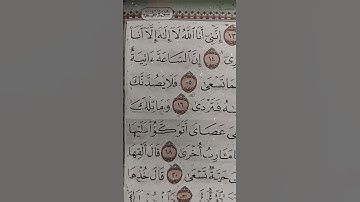 ١٣ إِنَّنِىٓ أَنَا ٱللَّهُ لَآ إِلَٰهَ إِلَّآ أَنَا۠
رِىٓ ١٤ إِنَّ ٱلسَّاعَةَ ءَاتِيَةٌ
بِمَا تَسْعَىٰ ١٥ فَلَا يَصُدَّنَّكَ
هُ فَتَرْدَىٰ ١٦ وَمَا تِلْكَ
عَصَاىَ أَتَوَكَّؤُا۟ عَلَيْهَا
مَـَٔارِبُ أُخْرَىٰ ١٨ قَالَ أَلْقِهَا
حَيَّةٌ تَسْعَىٰ ٢٠ قَالَ خُذْهَا